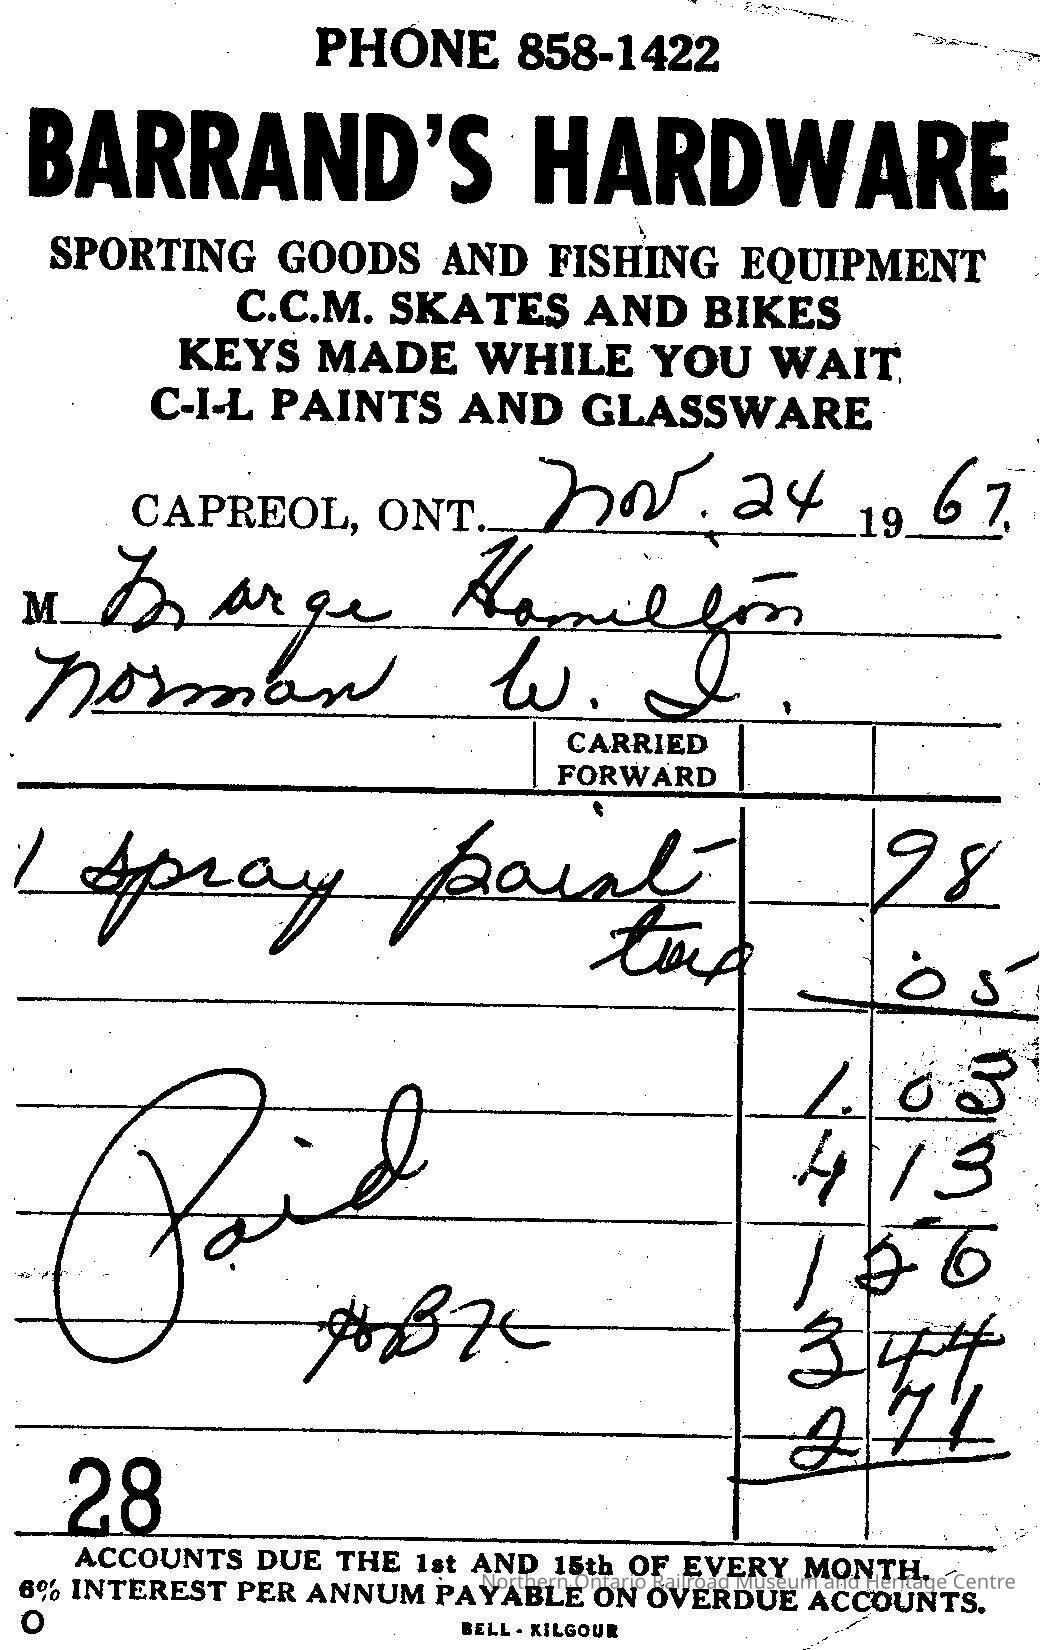 PHONE 858-1422
BARRAND'S HARDWARE
SPORTING GOODS AND FISHING EQUIPMENT
C.C.M. SKATES AND BIKES
KEYS MADE WHILE YOU WAIT
C-I-L PAINTS AND GLASSWARE
CAPREOL, ONT. Nov. 24 1967.
M Marge Hamilton
Norman W. I.
CARRIED FORWARD
1 spray paint 98
tax .05
1.03
4 13
1 26
3 44
2 71
Paid
28
ACCOUNTS DUE THE 1st AND 15th OF EVERY MONTH.
6% INTEREST PER ANNUM PAYABLE ON OVERDUE ACCOUNTS.
Northern Ontario Railroad Museum and Heritage Centre
BELL - KILGOUR